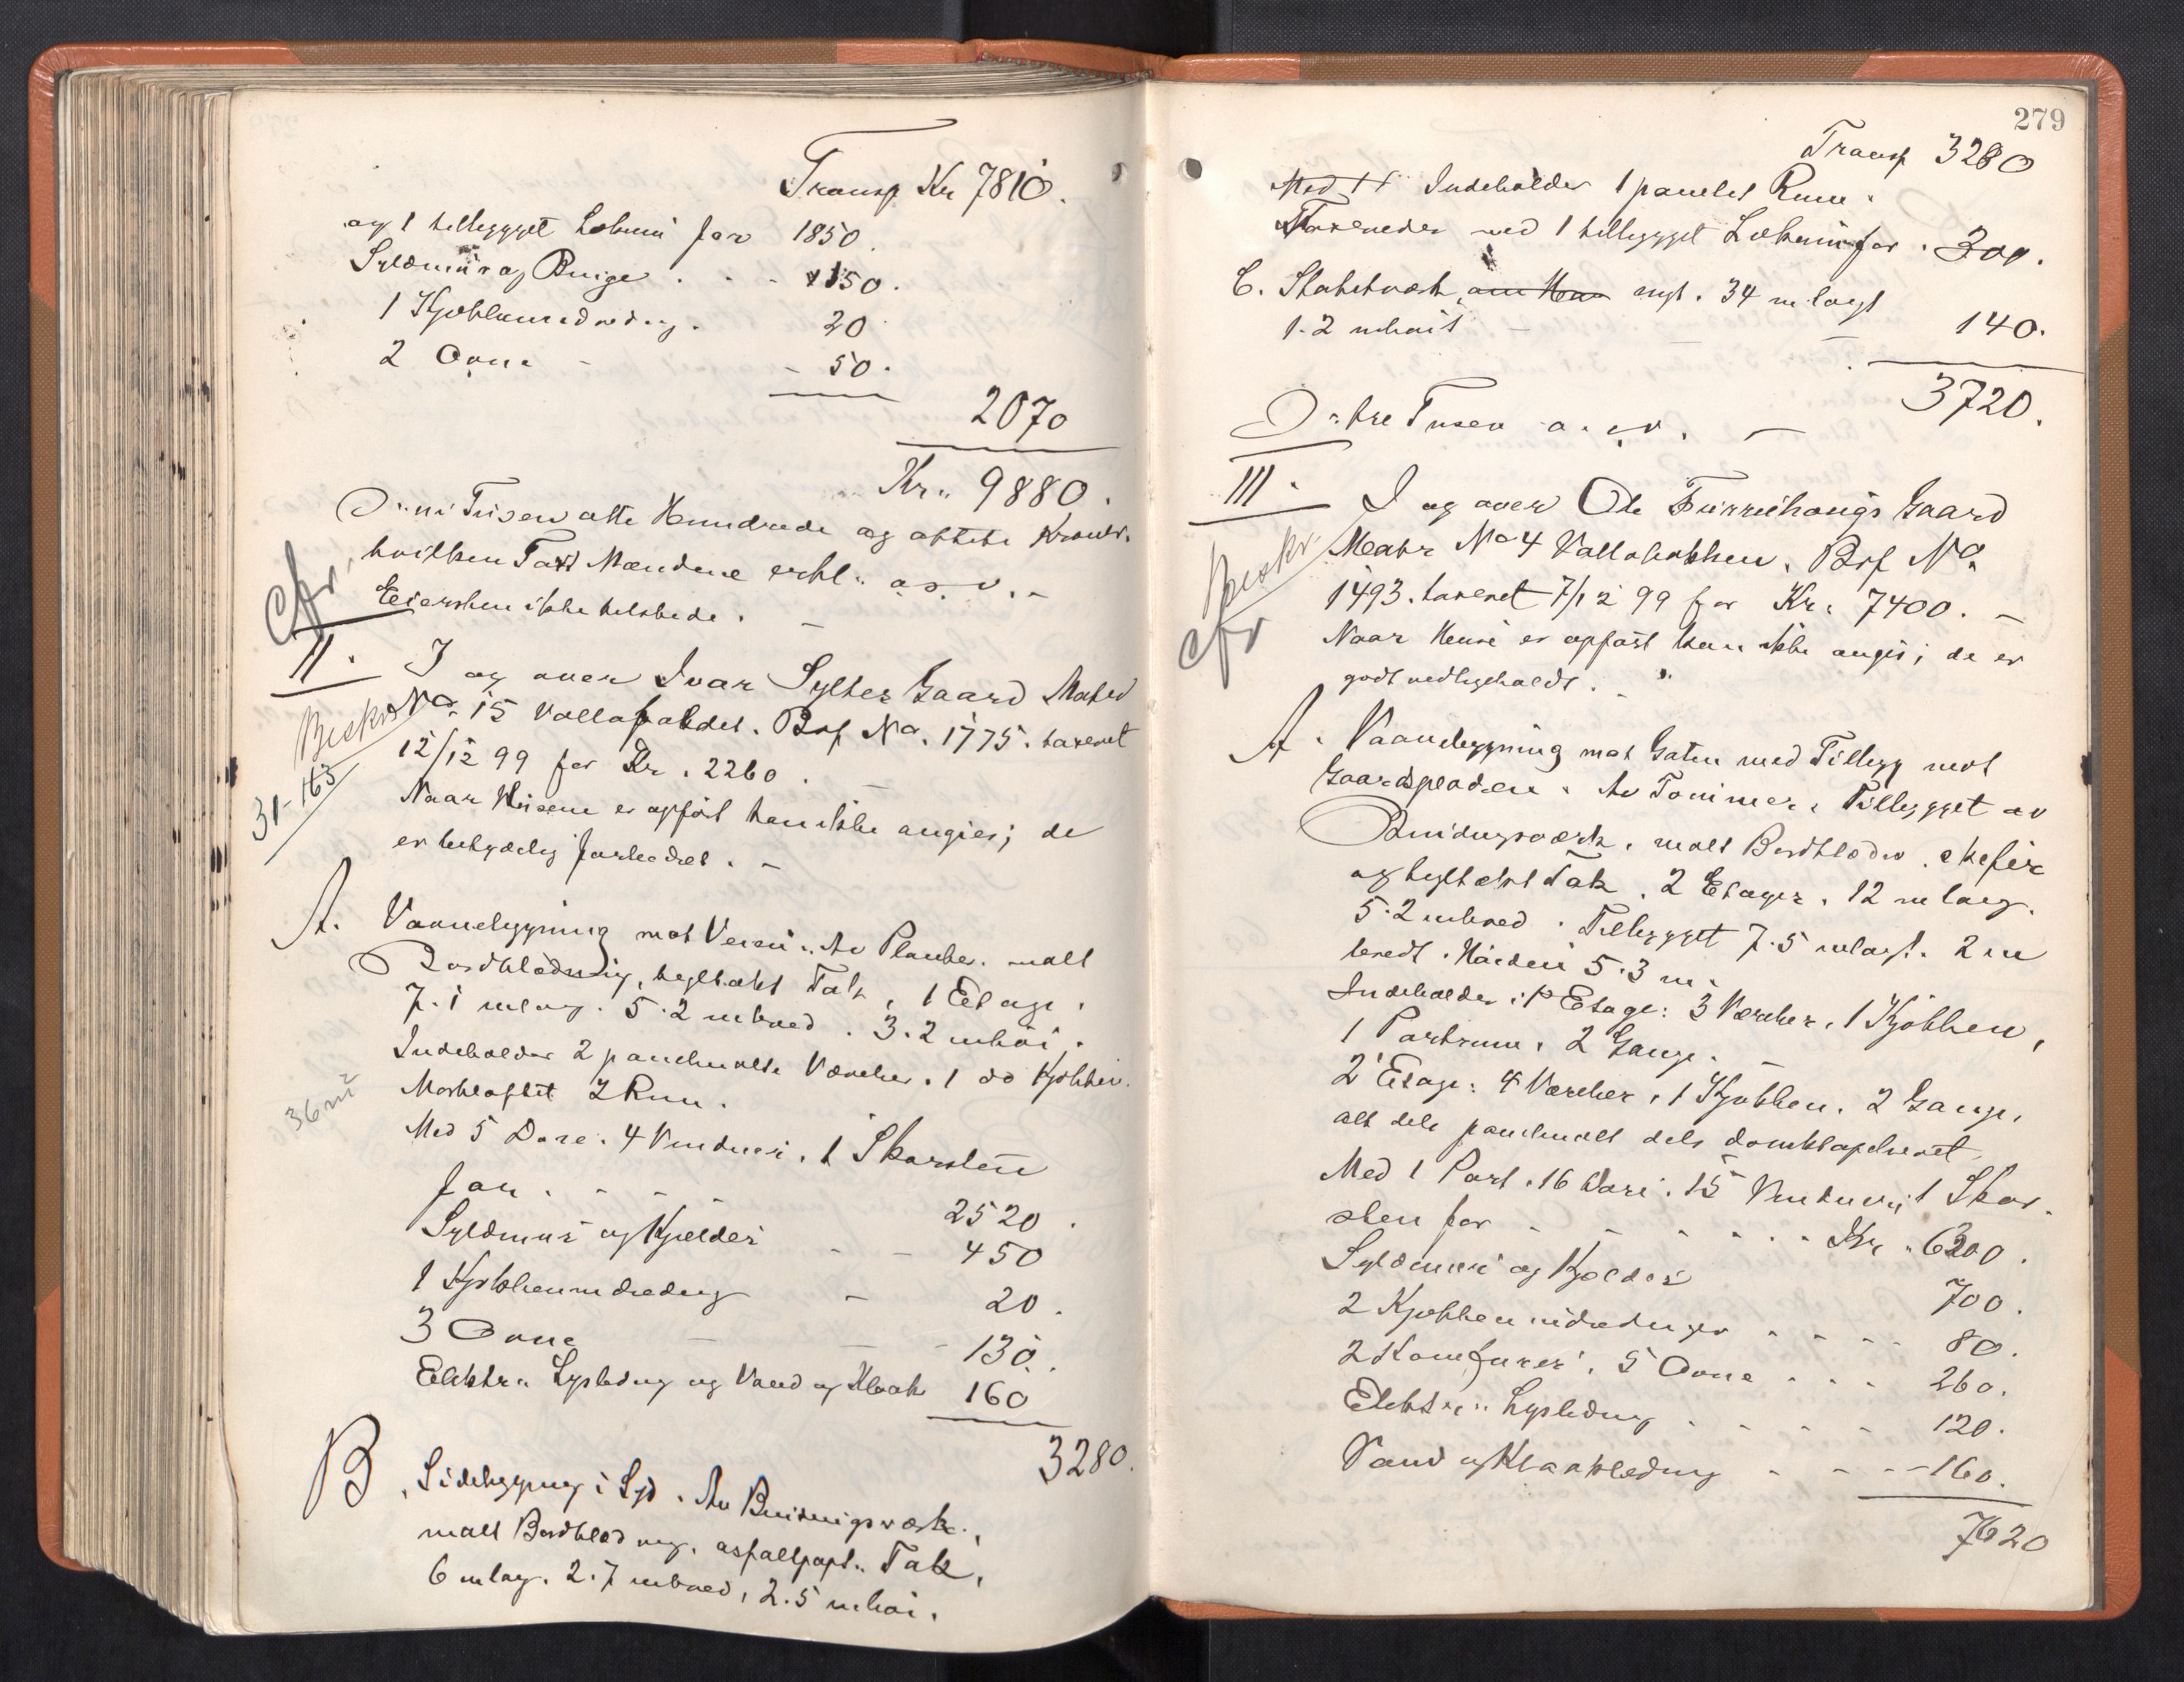 Transp Kr 7810.
og 1 tillegget Lokum for 1850.
Syldmur og Bruge . . - 150.
1 Kjøkkenindredng. 20
2 Ovne - - 50.
2070
Kr. 9880.
D: ni Tusen otte Hundrede og ottete Kroner.
hvilken Taxt Mændene erkl. o.s.v. -
Cfr.
Eiersken ikke tilstede.
II. I og over Ivar Syltes Gaard Matr
Beskr No. 15 . Brf No. 1775. taxeret
12/12 99 for Kr. 2260.
31-163
Naar Husene er opført kan ikke angies; de
er betydelig forbedret. -
A. Vaanebygning mot Veien. Av Planker. malt
Bordklædning, teglhækt Tak, 1 Etage,
7.1 m lang. 5.2 m bred. 3.2 m høi.
Indeholder 2 panelmalte Værelser. 1 do Kjøkken.
36 m²
Mørkloftet 2 Rum.
Med 5 Døre. 4 Vinduer. 1 Skorsten
for . - - - 2520.
Syldmur og Kjelder - - 450
1 Kjøkkenindredng - 20.
3 Ovne - - 130.
Elektr. Lysledng og Vand og Kloak 160
3280.
B. Sidebygnng i Syd. Av Bindingsværk,
malt Bordklædnng. asfaltpapt. Tak,
6 m lang. 2.7 m bred, 2.5 m høi.
279
Transp 3280
Med 11 Indeholder 1 panelet Rum.
Taxeredes med 1 tillegget Lokum for . 300.
C. Stakitværk, om Haven nyt. 34 m langt
1.2 m høit - - - 140.
3720.
D: tre Tusen o.s.v. -
III. I og over Ole Gaard
Beskr. Matr No 4 . Brf No.
1493. taxeret 7/12 99 for Kr. 7400. -
Cfr
Naar Huse er opført kan ikke angis; de er
godt vedligeholdt. -
A. Vaanebygning mot Gaten med Tillegg mot
Gaardspladsen. Av Tømmer. Tillegget av
Bindingsværk. malt Bordklædn. skifer
og teglhækt Tak. 2 Etager. 12 m lang.
5.2 m bred. Tillegget 7.5 m langt. 2 m
bredt. Høiden 5.3 m.
Indeholder i 1ste Etage: 3 Værelser, 1 Kjøkken,
1 Portrum, 2 Gange. -
2' Etage: 4 Værelser, 1 Kjøkken, 2 Gange,
alt dels panelmalt dels
Med 1 Port. 16 Døre. 15 Vinduer, 1 Skor-
sten for - - - . . . Kr. 6300.
Syldmur og Kjelder 700.
2 Kjøkkenindrednger - - - - 80.
2 Komfurer, 5 Ovne - - - 260.
Elektr. Lysledng . . - - 120.
Vand og Kloakledning - - - - 160.
7620